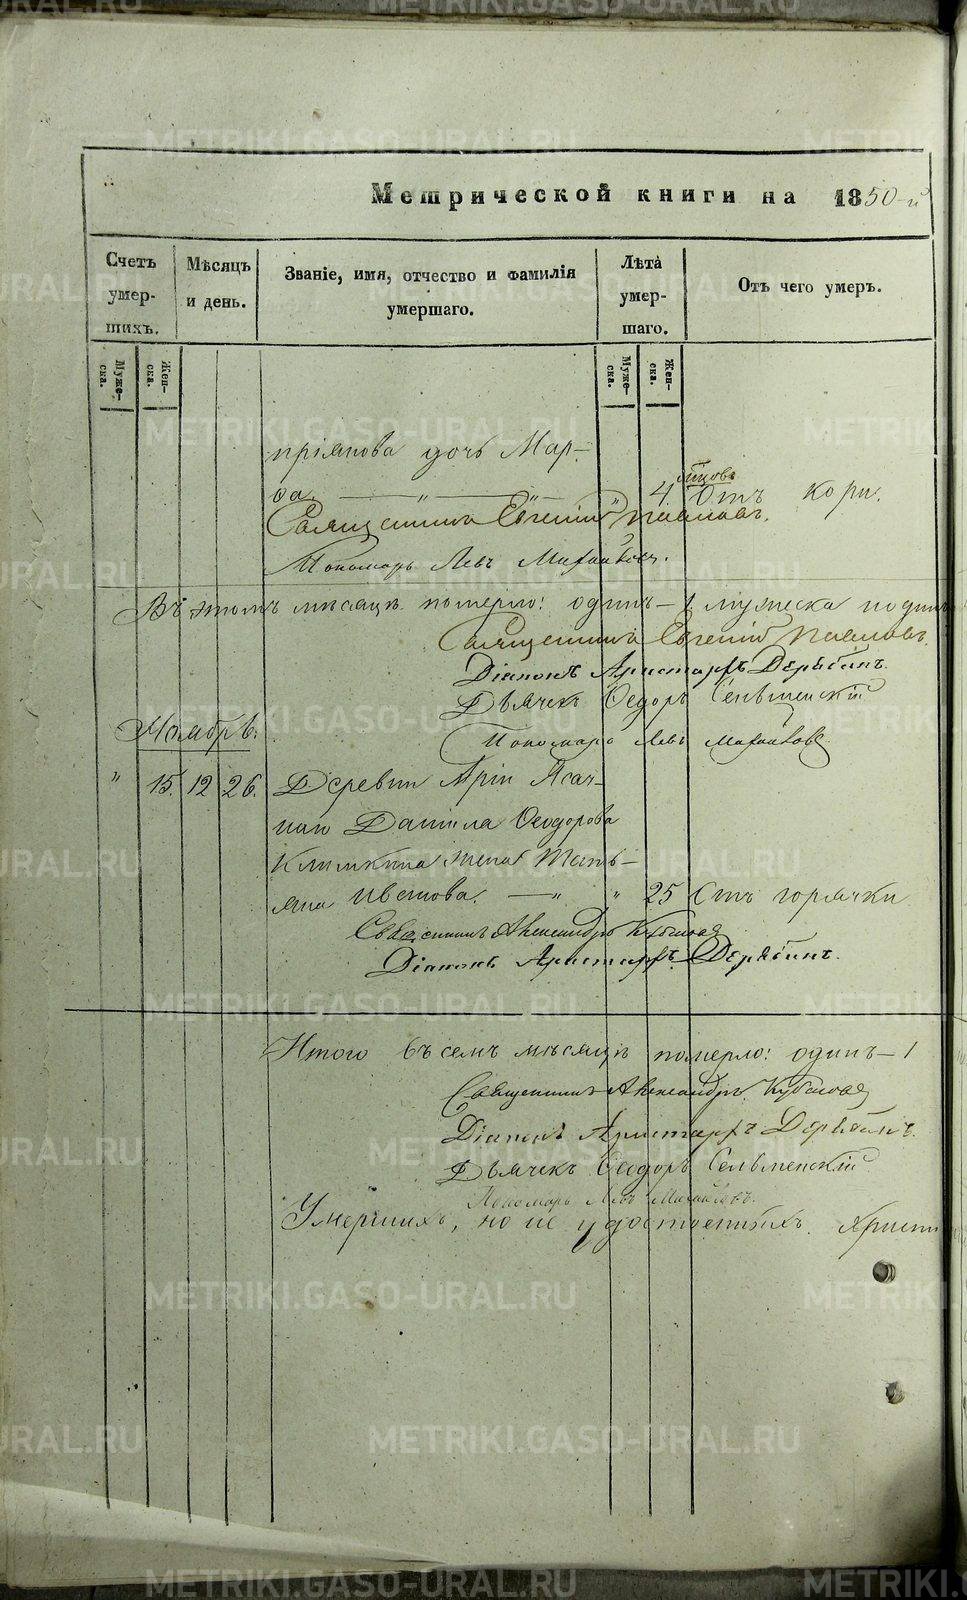 Метрической книги на 1850-й
Счетъ умер- шихъ.
Мѣсяцъ и день.
Званіе, имя, отчество и фамилія умершаго.
Лѣта умер- шаго.
Отъ чего умеръ.
Муже- ска.
Жен- ска.
Муже- ска.
Жен- ска.
пріянова дочь Мар-
ѳа. — " — " — " 4. Отъ кори.
Священникъ Евгеній Павловъ.
Пономарь Левъ
Въ этомъ мѣсяцѣ померло: одинъ — 1 мужеска
Священникъ Евгеній Павловъ.
Діаконъ Аристархъ Дерябинъ.
Дьячекъ Ѳеодоръ Сельменскій
Пономарь Левъ
Ноябрь.
" 15. 12 26. Деревни Аріи Ясач-
наго Данила Ѳеодорова
Климкина жена Тать-
яна Иванова. — " " 25 Отъ горячки
Священникъ Александръ
Діаконъ Аристархъ Дерябинъ.
Итого въ семъ мѣсяцѣ померло: одинъ — 1
Священникъ Александръ
Діаконъ Аристархъ Дерябинъ.
Дьячекъ Ѳеодоръ Сельменскій
Пономарь Левъ
Умершихъ, но не удостоенныхъ Христі
METRIKI.GASO-URAL.RU